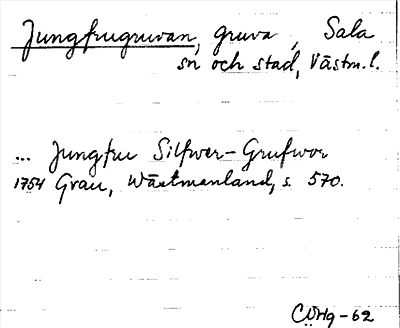 Jungfrugruvan, gruva, Sala
sn och stad, Västm.l.
... Jungfru Silfwer-Grufwor
1754 Grau, Wästmanland, s. 570.
CÖHg-62